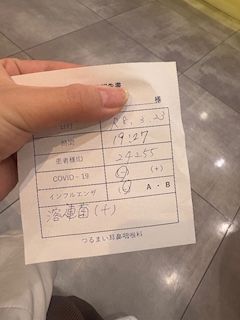 様
R8.3.23
19:27
患者様ID 24255
COVID-19 (-) (+)
インフルエンザ (-) A・B
溶連菌(+)
つるまい耳鼻咽喉科